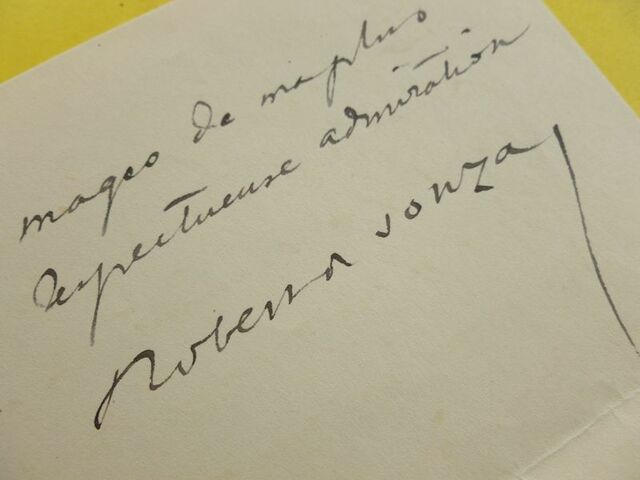 mages de ma plus
respectueuse admiration
Robert de Souza